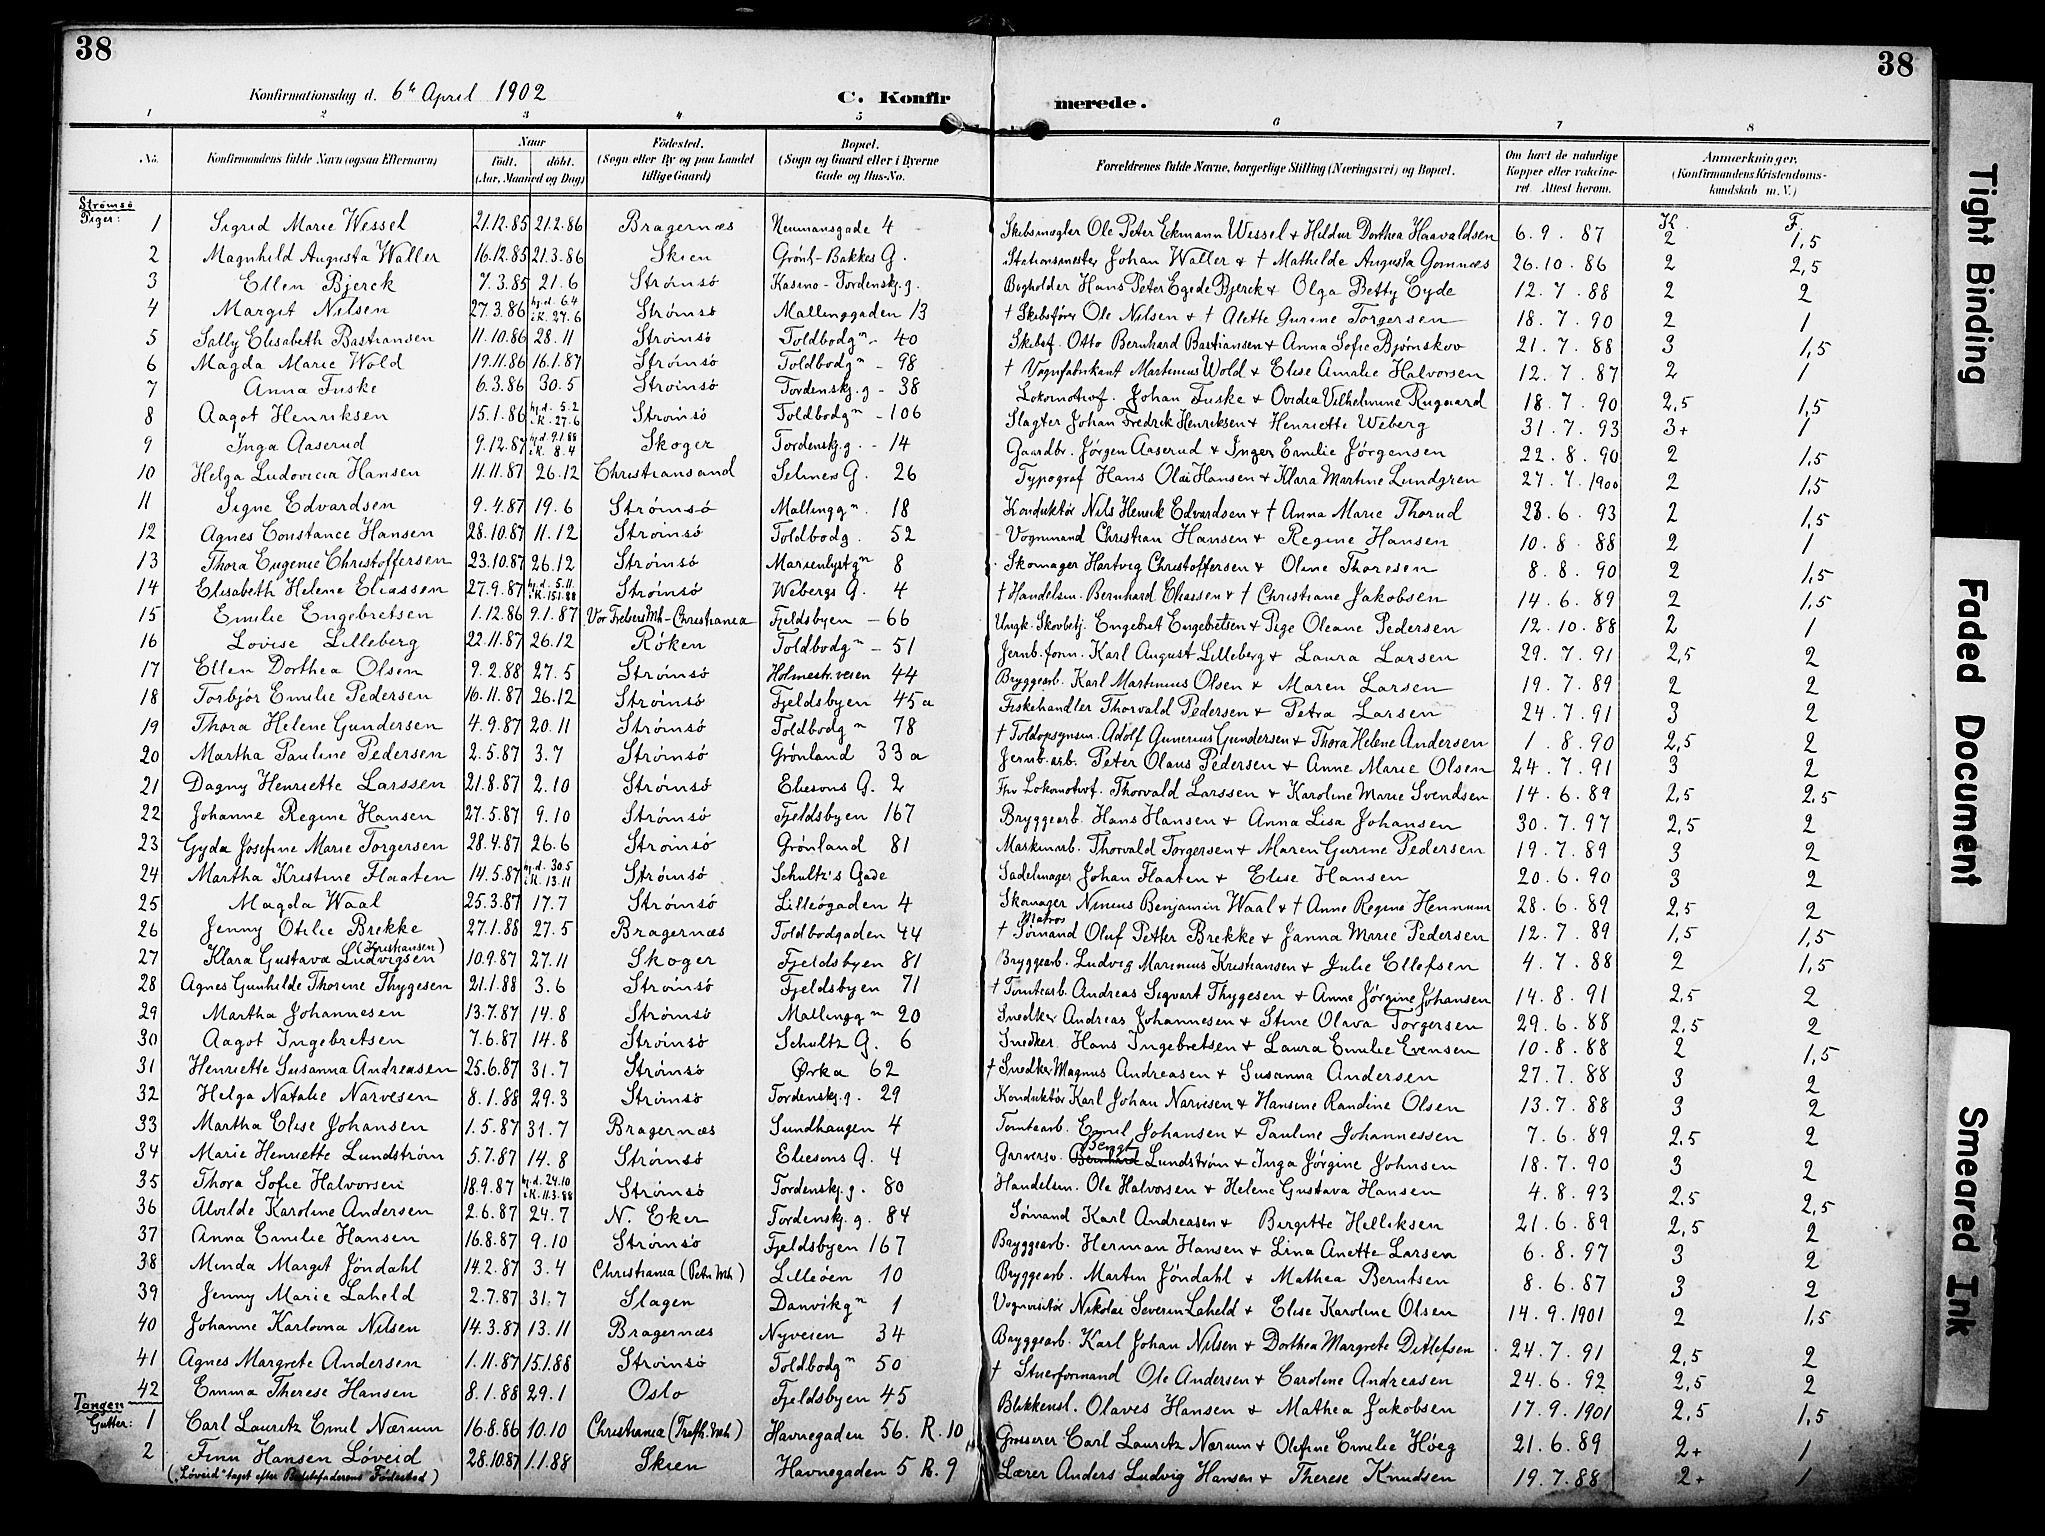 38
38
Konfirmationsdag d. 6te April 1902
C. Konfirmerede.
1 2 3 4 5 6 7 8
No. | Konfirmandens fulde Navn (ogsaa Efternavn) | Naar født. døbt. (Aar, Maaned og Dag) | Fødested. (Sogn eller By og paa Landet tillige Gaard) | Bopæl. (Sogn og Gaard eller i Byerne Gade og Hus-No. | Forældrenes fulde Navne, borgerlige Stilling (Næringsvei) og Bopæl. | Om havt de naturlige Kopper eller vaccineret. Attest herom. | Anmærkninger, (Konfirmandens Kristendomskundskab m. V.)
Strømsø
Piger:
K. F.
1 Sigrid Marie Wessel 21.12.85 21.2.86 Bragernæs Neumansgade 4 Skibsmægler Ole Peter Eckmann Wessel + Hildur Dorthea Haavaldsen 6.9.87 2 1,5
2 Magnhild Augusta Waller 16.12.85 21.3.86 Skien Grønl-Bakkes G. Stationsmester Johan Waller + † Mathilde Augusta Gomnæs 26.10.86 2 2,5
3 Ellen Bjerck 7.3.85 21.6 Strømsø Kasino-Tordenskj.g. Bogholder Hans Peter Egede Bjerck + Olga Betty Eyde 12.7.88 2 2
4 Margit Nilsen 27.3.86 hj.d. 6.4 i K. 27.6 Strømsø Mallinggaden 13 † Skibsfører Ole Nilsen + † Alette Gurine Torgersen 18.7.90 2 1
5 Sally Elisabeth Bastiansen 11.10.86 28.11 Strømsø Toldbodgn - 40 Skibsf. Otto Bernhard Bastiansen + Anna Sofie Bjørnskov 21.7.88 3 1,5
6 Magda Marie Wold 19.11.86 16.1.87 Strømsø Toldbodgn - 98 † Vognfabrikant Martinius Wold + Elise Amalie Halvorsen 12.7.87 2 1
7 Anna Fuske 6.3.86 30.5 Strømsø Tordenskj.g - 38 Lokomotivf. Johan Fuske + Ovidia Vilhelmine Rugaard 18.7.90 2,5 1,5
8 Aagot Henriksen 15.1.86 hj.d. 5.2 i K. 27.6 Strømsø Toldbodgn - 106 Slagter Johan Fredrik Henriksen + Henriette Weberg 31.7.93 3+ 1
9 Inga Aaserud 9.12.87 hj.d. 9.1.88 i K. 8.4 Skoger Tordenskj.g. - 14 Gaardbr. Jørgen Aaserud + Inger Emilie Jørgensen 22.8.90 2 1,5
10 Helga Ludovicia Hansen 11.11.87 26.12 Christiansand Selmers G. 26 Typograf Hans Olai Hansen + Klara Martine Lundgren 27.7.1900 2 1,5
11 Signe Edvardsen 9.4.87 19.6 Strømsø Mallinggn. 18 Konduktør Nils Henrik Edvardsen + † Anna Marie Thorud 23.6.93 2 1,5
12 Agnes Constance Hansen 28.10.87 11.12 Strømsø Toldbodg. 52 Vognmand Christian Hansen + Regine Hansen 10.8.88 2 1
13 Thora Eugenie Christoffersen 23.10.87 26.12 Strømsø Marienlystgn 8 Skomager Hartvig Christoffersen + Oline Thoresen 8.8.90 2 1,5
14 Elisabeth Helene Eliassen 27.9.87 hj.d. 5.11 i K. 15.1.88 Strømsø Webergs G. 4 † Handelsm. Bernhard Eliassen + † Christiane Jakobsen 14.6.89 2 1,5
15 Emilie Engebretsen 1.12.86 9.1.87 Vor Frelsers Mh-Christiania Fjeldsbyen - 66 Ungk. Skovbetj. Engebret Engebretsen + Pige Oleane Pedersen 12.10.88 2 1
16 Lovise Lilleberg 22.11.87 26.12 Røken Toldbodgn - 51 Jernb.form. Karl August Lilleberg + Laura Larsen 29.7.91 2,5 2
17 Ellen Dorthea Olsen 9.2.88 27.5 Strømsø Holmestr.veien 44 Bryggearb. Karl Martinius Olsen + Maren Larsen 19.7.89 2 2
18 Torbjør Emilie Pedersen 16.11.87 26.12 Strømsø Fjeldsbyen 45a Fiskehandler Thorvald Pedersen + Petra Larsen 24.7.91 3 2
19 Thora Helene Gundersen 4.9.87 20.11 Strømsø Toldbodgn 78 † Toldopsynsm. Adolf Gunerius Gundersen + Thora Helene Andersen 1.8.90 2,5 2
20 Martha Pauline Pedersen 2.5.87 3.7 Strømsø Grønland 33a Jernb.arb. Peter Olaus Pedersen + Anne Marie Olsen 24.7.91 3 2
21 Dagny Henriette Larssen 21.8.87 2.10 Strømsø Eliesons G. 2 Fhv Lokomotivf. Thorvald Larssen + Karoline Marie Svendsen 14.6.89 2,5 2,5
22 Johanne Regine Hansen 27.5.87 9.10 Strømsø Fjeldsbyen 167 Bryggearb. Hans Hansen + Anna Lisa Johansen 30.7.97 2,5 2
23 Gyda Josefine Marie Torgersen 28.4.87 26.6 Strømsø Grønland 81 Maskinarb. Thorvald Torgersen + Maren Gurine Pedersen 19.7.89 3 2
24 Martha Kristine Flaaten 14.5.87 hj.d. 30.5 i K. 13.11 Strømsø Schultz's Gade Sadelmager Johan Flaaten + Elise Hansen 20.6.90 3 2
25 Magda Waal 25.3.87 17.7 Strømsø Lilleøgaden 4 Skomager Ninius Benjamin Waal + † Anne Regine Hennum 28.6.89 2,5 2
26 Jenny Otilie Brekke 27.1.88 27.5 Bragernæs Toldbodgaden 44 † Sømand Matros Oluf Petter Brekke + Janna Marie Pedersen 12.7.89 1,5 1,5
27 Klara Gustava Ludvigsen (Kristiansen) 10.9.87 27.11 Skoger Fjeldsbyen 81 Bryggearb. Ludvig Marinius Kristiansen + Julie Ellefsen 4.7.88 2 1,5
28 Agnes Gunhilde Thorine Thygesen 21.1.88 3.6 Strømsø Fjeldsbyen 71 † Tomtearb. Andreas Sigvart Thygesen + Anne Jørgine Johansen 14.8.91 2,5 2
29 Martha Johannesen 13.7.87 14.8 Strømsø Mallinggn 20 Snedker Andreas Johannesen + Stine Olava Torgersen 29.6.88 2,5 2
30 Aagot Ingebretsen 7.6.87 14.8 Strømsø Schultz G. 6 Snedker. Hans Ingebretsen + Laura Emilie Evensen 10.8.88 2 1,5
31 Henriette Susanna Andreasen 25.6.87 31.7 Strømsø Ørka 62 † Snedker Magnus Andreasen + Susanna Andersen 27.7.88 3 2
32 Helga Natalie Narvesen 8.1.88 29.3 Strømsø Tordenskj.g. 29 Konduktør Karl Johan Narvesen + Hansine Randine Olsen 13.7.88 3 2
33 Martha Elise Johansen 1.5.87 31.7 Bragernæs Sundhaugen 4 Tomtearb. Emil Johansen + Pauline Johannessen 7.6.89 2,5 2
34 Marie Henriette Lundstrøm 5.7.87 14.8 Strømsø Eliesons G. 4 Garversv. Bernhard Bengt Lundstrøm + Inga Jørgine Johnsen 18.7.90 3 2
35 Thora Sofie Halvorsen 18.9.87 hj.d. 24.10 i K. 11.3.88 Strømsø Tordenskj.g. 80 Handelsm. Ole Halvorsen + Helene Gustava Hansen 4.8.93 2,5 2,5
36 Alvilde Karoline Andersen 2.6.87 24.7 N. Eker Tordenskj.g. 84 Sømand Karl Andreasen + Birgitte Helliksen 21.6.89 2,5 2
37 Anna Emilie Hansen 16.8.87 9.10 Strømsø Fjeldsbyen 167 Bryggearb. Herman Hansen + Lina Anette Larsen 6.8.97 3 2
38 Minda Margit Jøndahl 14.2.87 3.4 Christiania (Petri Mh) Lilleøen 10 Bryggearb. Martin Jøndahl + Mathea Berntsen 8.6.87 3 2
39 Jenny Marie Laheld 2.7.87 31.7 Slagen Danvikgn 1 Vognvisitør Nikolai Severin Laheld + Elise Karoline Olsen 14.9.1901 2 1,5
40 Johanne Karlovna Nilsen 14.3.87 13.11 Bragernæs Nyveien 34 Bryggearb. Karl Johan Nilsen + Dorthea Margrete Ditlefsen 24.7.91 2,5 2
41 Agnes Margrete Andersen 1.11.87 15.1.88 Strømsø Toldbodgn 50 † Stuerformand Ole Andersen + Caroline Andreasen 24.6.92 2,5 2
42 Emma Therese Hansen 8.1.88 29.1 Oslo Fjeldsbyen 45 Blikkensl. Olaves Hansen + Mathea Jakobsen 17.9.1901 2,5 1,5
Tangen
Gutter:
1 Carl Lauritz Emil Nærum 16.8.86 10.10 Christiania (Trefh. Mh) Havnegaden 56. R. 10 Grosserer Carl Lauritz Nærum + Olefine Emilie Høeg 21.6.89 2+ 1
2 Finn Hansen Løveid 28.10.87 1.1.88 Skien Havnegaden 5 R. 9 Lærer Anders Ludvig Hansen + Therese Knudsen 19.7.88 2+ 1
("Løveid" taget efter Bedstefaderens Fødested)
Tight Binding
Faded Document
Smeared Ink